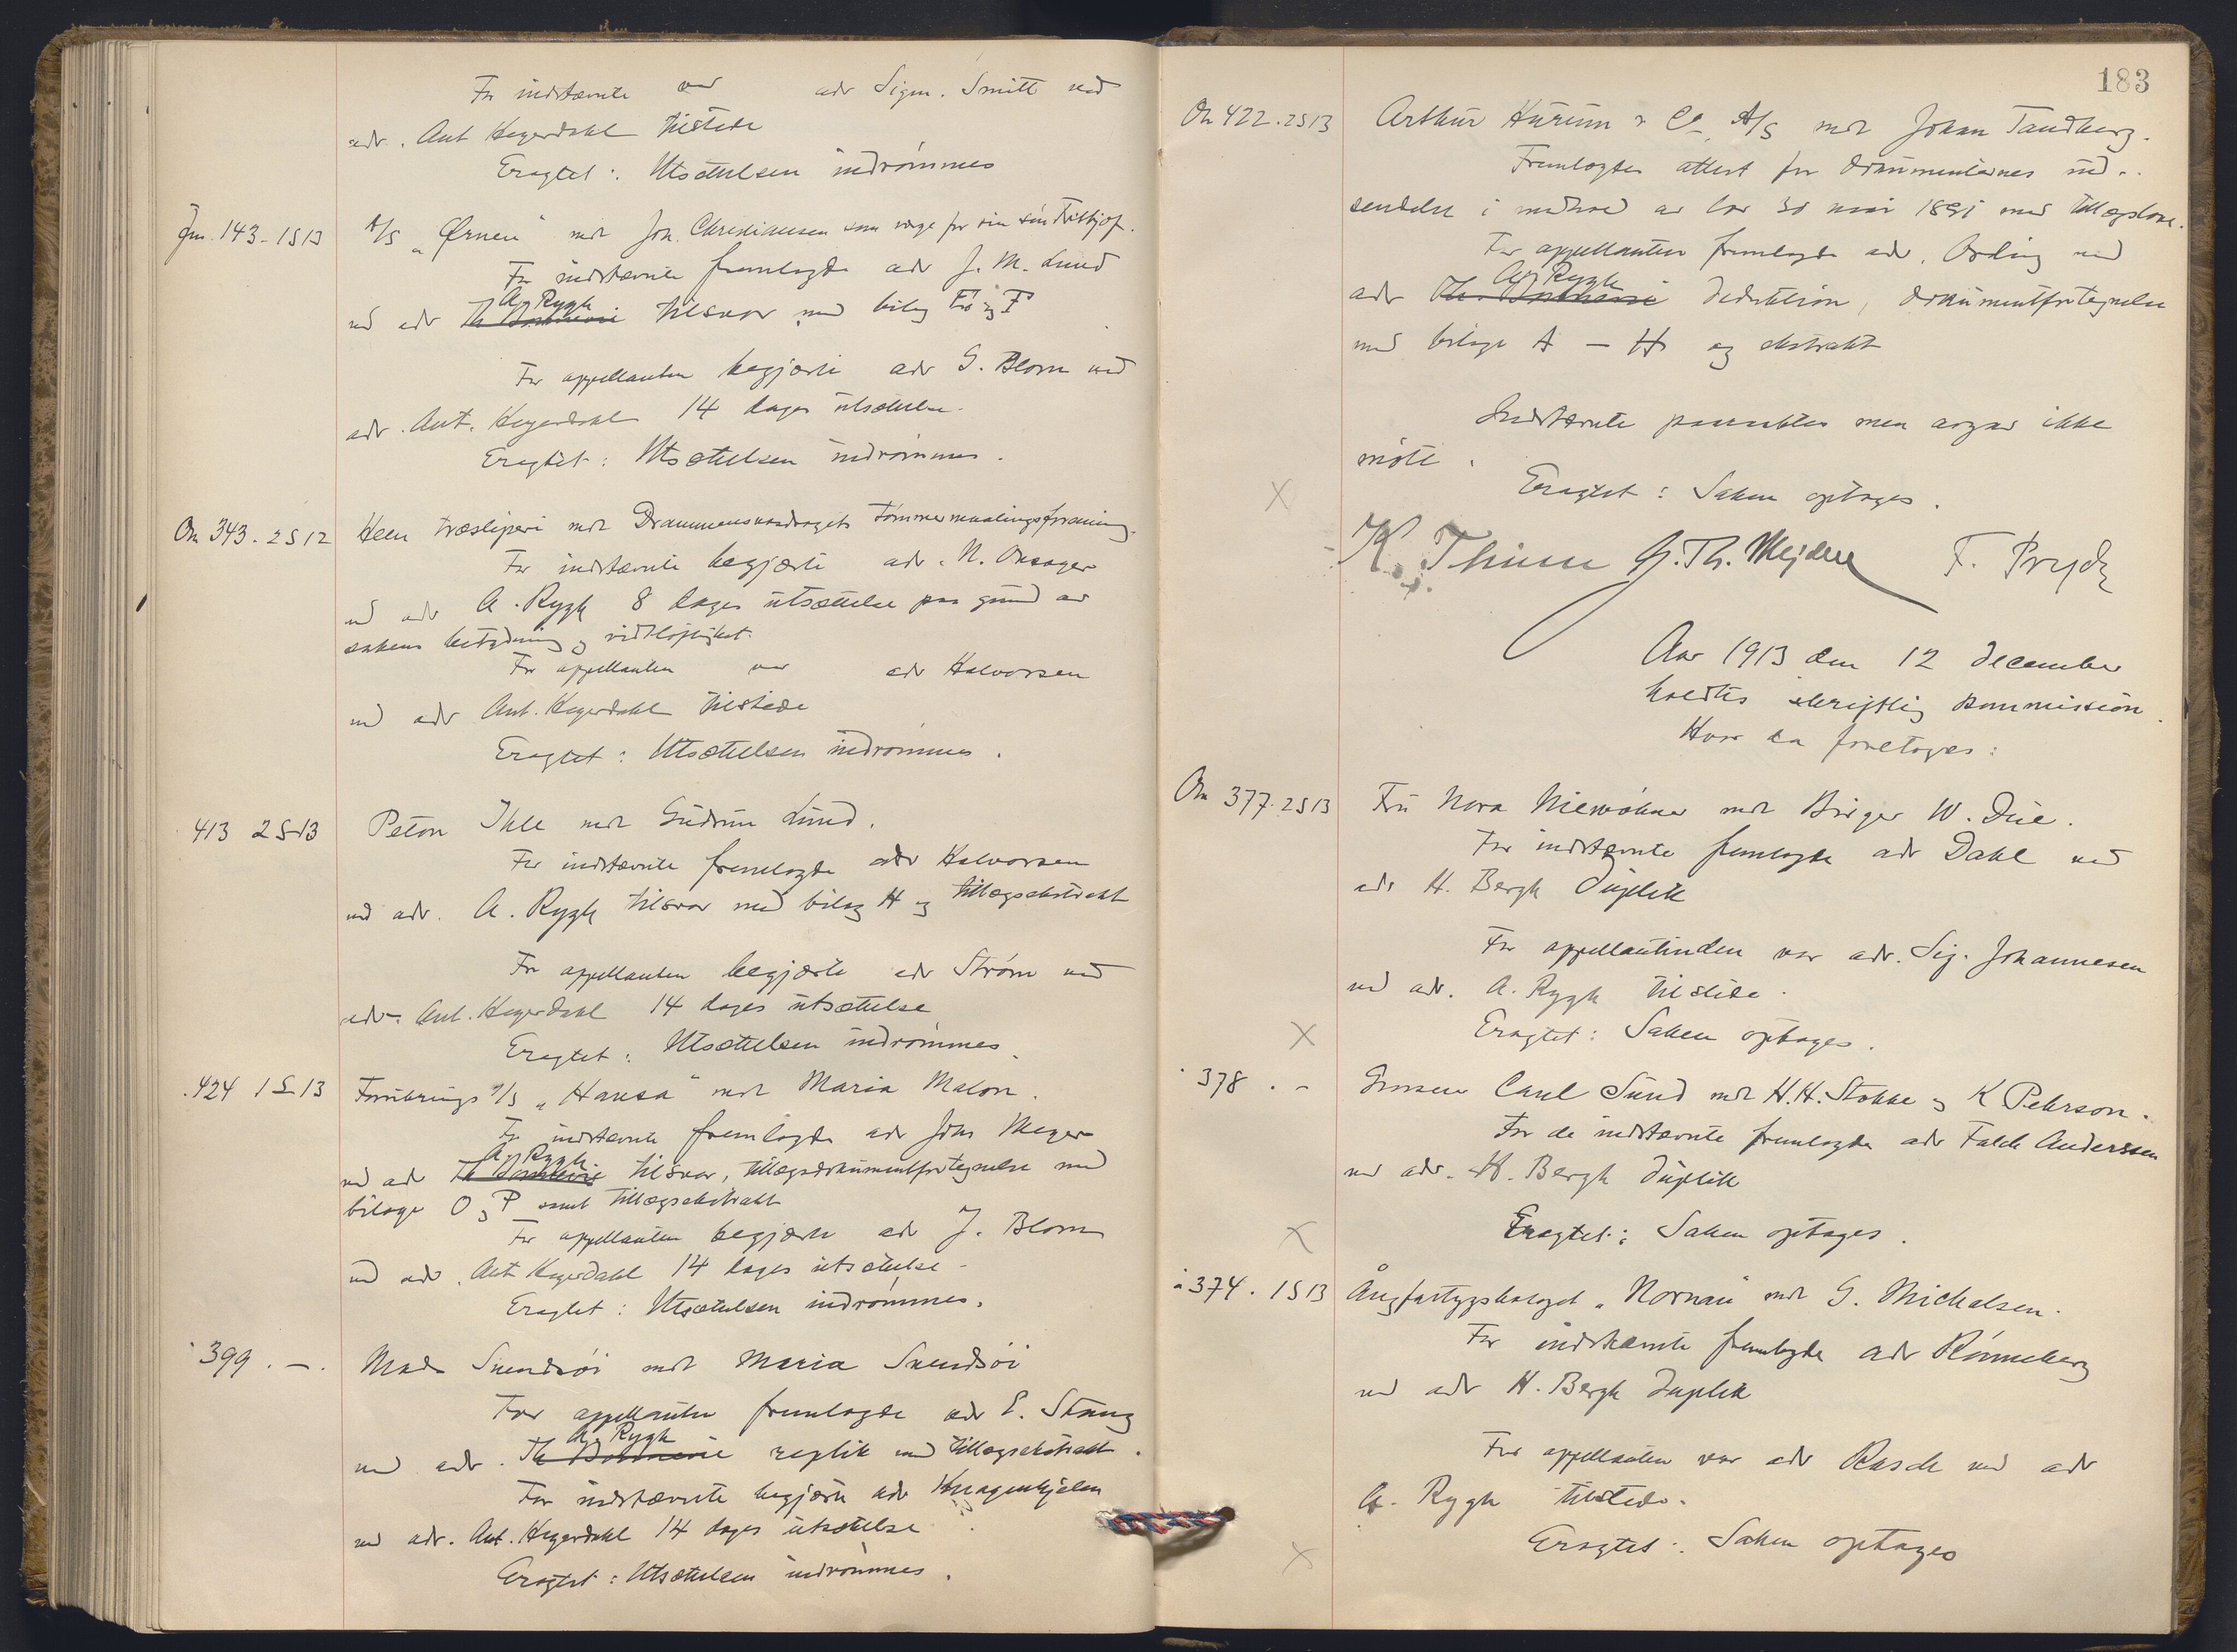 For indstævnte var adv Sigm. Smitt ved
adv. Ant Hegerdahl tilstede
Eragtet: Utsættelsen indrömmes
Jm. 143 - 1S13 A/S „Ørnen" mot Joh. Christiansen som værge for sin sön Frithjof.
For indstævnte fremlagde adv J. M. Lund
A. Rygh
ved adv Tilsvar med bilag E og F
For appellanten begjærte adv G. Blom ved
adv. Ant. Hegerdahl 14 dages utsættelse.
Eragtet: Utsættelsen indrömmes.
Om 343. 2S12 Heen træsliperi mot Drammensvasdragets tömmermaalingsforening.
For indstævnte begjærte adv. N. Onsager
ved adv A. Rygh 8 dages utsættelse paa grund av
sakens betydning og vidtlöftighet.
For appellanten var adv Halvorsen
ved adv Ant. Hegerdahl tilstede
Eragtet: Utsættelsen indrömmes.
413 2S13 Ihle mot Gudrun Lund.
For indstævnte fremlagde adv Halvorsen
ved adv. A. Rygh tilsvar med bilag H og tillægsekstrakt
For appellanten begjærte adv Ström ved
adv. Ant. Hegerdahl 14 dages utsættelse
Eragtet: Utsættelsen indrömmes.
424 1S13 A/S „Hansa" mot Maria Malon.
For indstævnte fremlagde adv Johs Meyer
A. Rygh
ved adv tilsvar, tillægsdokumentfortegnelse med
bilage O og P samt tillægsekstrakt
For appellanten begjærte adv J. Blom
ved adv. Ant Hegerdahl 14 dages utsættelse.
Eragtet: Utsættelsen indrömmes.
" 399 . - . Svendsöi mot Maria Svendsöi
For appellanten fremlagde adv E. Stang
A. Rygh
ved adv. replik med tillægsekstrakt.
For indstævnte begjærte adv Knagenhjelm
ved adv. Ant. Hegerdahl 14 dages utsættelse.
Eragtet: Utsættelsen indrömmes.
183
On 422. 2S13 Arthur Kurum & Co A/S mot Johan Tandberg.
Fremlagdes attest for dokumenternes ind-
sendelse i medhold av lov 30 mai 1891 med tillægslove.
For appellanten fremlagde adv. Ording ved
A. Rygh
adv deduktion, dokumentfortegnelse
med bilage A - H og ekstrakt
Indstævnte paaraabtes men avgav ikke
möte.
X Eragtet: Saken optages.
K. Thime G. Th. Mejdell F. Prydz
Aar 1913 den 12 december
holdtes skriftlig kommission.
Hvor da foretoges:
On 377. 2S13 Fru Nora Niewöhner mot Birger W. Due.
For indstævnte fremlagde adv Dahl ved
adv H. Bergh Duplik
For appellantinden var adv. Sig. Johannesen
ved adv. A. Rygh tilstede.
X Eragtet: Saken optages.
" 378 . - Carl Sund mot H. H. Stokke og K Pehrson.
For de indstævnte fremlagde adv Falck Anderssen
ved adv. H. Bergh Duplik
X Eragtet: Saken optages.
" 374. 1S13 Ångfartygsbolaget „Nornan" mot G. Michalsen.
For indstævnte fremlagde adv Rönneberg
ved adv H. Bergh Duplik
For appellanten var adv Rasch ved adv
A. Rygh tilstede.
X Eragtet: Saken optages